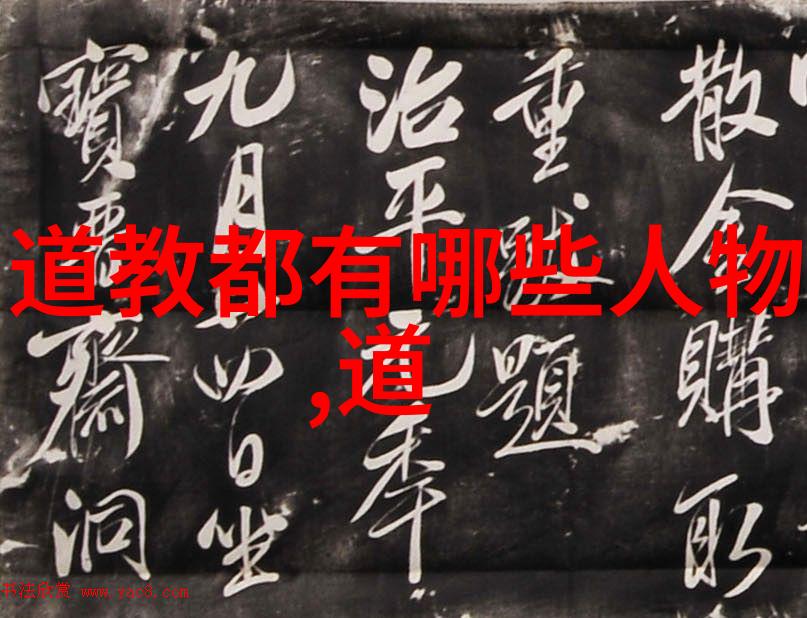 道教都有哪些人物
,道
散金購取
重題
治平元年
九月廿四日坐
寶齋洞
书法欣赏 www.yac8.com